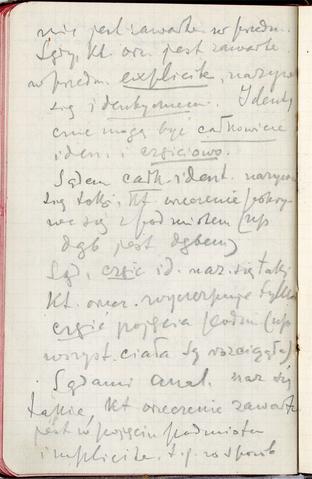 nie jest zawarte w podm.
Sądy, kt. orz. jest zawarte
w podm. explicite, nazyw
się identycznemi. Identy
czne mogą być całkowicie
iden. i częściowo.
Sądem całk. ident. nazywa
się taki, kt. orzeczenie pokry
wa się z podmiotem (np
dąb jest dębem)
Sąd. częśc id. naz. się taki
kt. orzecz. wyczerpuje tylko
część pojęcia podm (np
wszyst. ciała są rozciągłe)
Sądami anal. naz się
takie, kt orzeczenie zawarte
jest w pojęciu podmiotu
implicite. t. j. w sposób